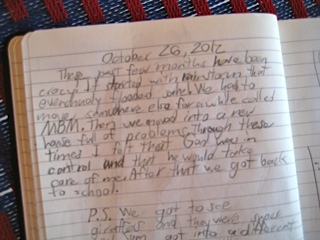 October 26, 2012
These past few months have been
crazy. It started with rainstorm that
eventually flooded which We had to
move somewhere else for a while called
MBM. Then we moved into a new
house full of problems. Through these
times I felt that God was in
control and that he would take
care of me. After that we got back
to school.
P.S. We got to see
giraffes and they were super
got into a different